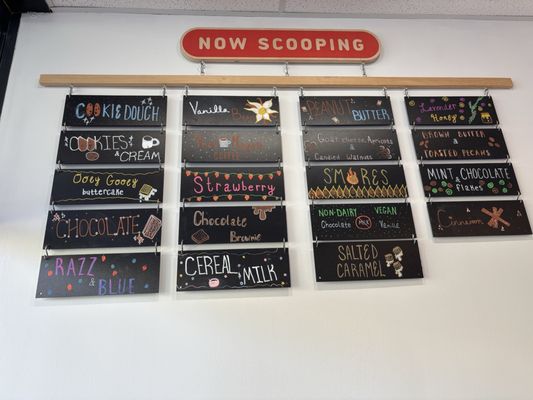 NOW SCOOPING
COOKIE DOUGH
COOKIES
& CREAM
Ooey Gooey
buttercake
CHOCOLATE
RAZZ
& BLUE
Vanilla
Strawberry
Chocolate
Brownie
CEREAL
& MILK
PEANUT
BUTTER
Goat cheese, Apricots
&
Candied Walnuts
S'MORES
NON-DAIRY VEGAN
Chocolate OR Vanilla
SALTED
CARAMEL
Lavender
Honey
BROWN BUTTER
&
TOASTED PECANS
MINT & CHOCOLATE
Flakes
Cinnamon